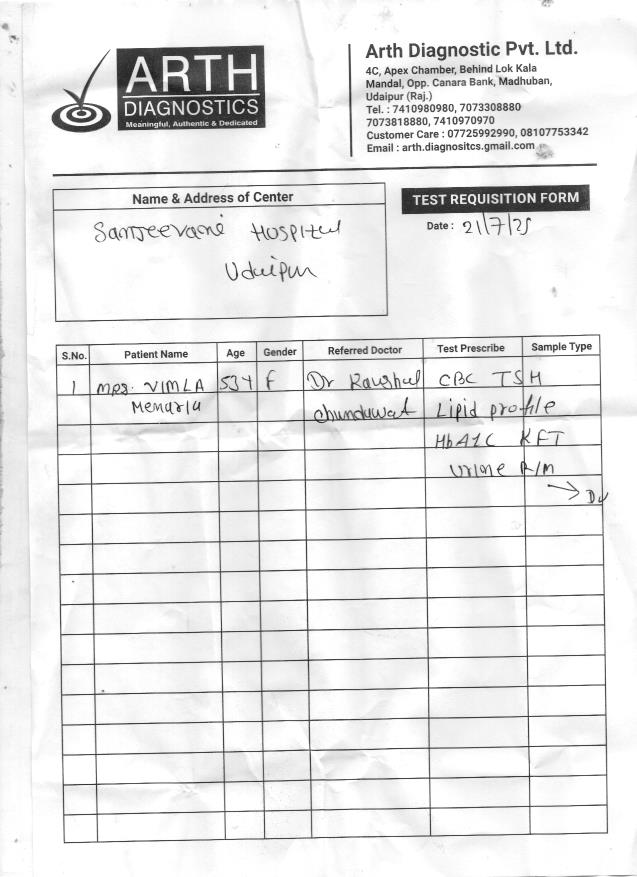 ARTH
DIAGNOSTICS
Meaningful, Authentic & Dedicated
Arth Diagnostic Pvt. Ltd.
4C, Apex Chamber, Behind Lok Kala
Mandal, Opp. Canara Bank, Madhuban,
Udaipur (Raj.)
Tel. : 7410980980, 7073308880
7073818880, 7410970970
Customer Care : 07725992990, 08107753342
Email : arth.diagnositcs.gmail.com
Name & Address of Center
Sanjeevani Hospital
Udaipur
TEST REQUISITION FORM
Date : 21/7/25
S.No. Patient Name Age Gender Referred Doctor Test Prescribe Sample Type
1 MRS. VIMLA 53Y F Dr Kaushal CBC TSH
Menaria Chundawat Lipid profile
HbA1C KFT
Urine R/M